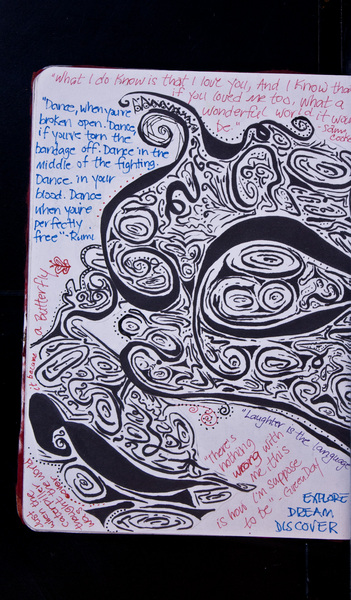 "What I do know is that I love you, And I know that
if you loved me too, what a
wonderful world it would
be." Sam
Cooke
"Dance, when you're
broken open. Dance,
if you've torn the
bandage off. Dance in the
middle of the fighting.
Dance in your
blood. Dance
when you're
perfectly
free" - Rumi
Just
when the
caterpillar
thought
the world
was over
it became
a Butterfly
"Laughter is the language
"There's
nothing
wrong with
me, this
is how I'm suppose
to be" - Green Day
EXPLORE
DREAM
DISCOVER